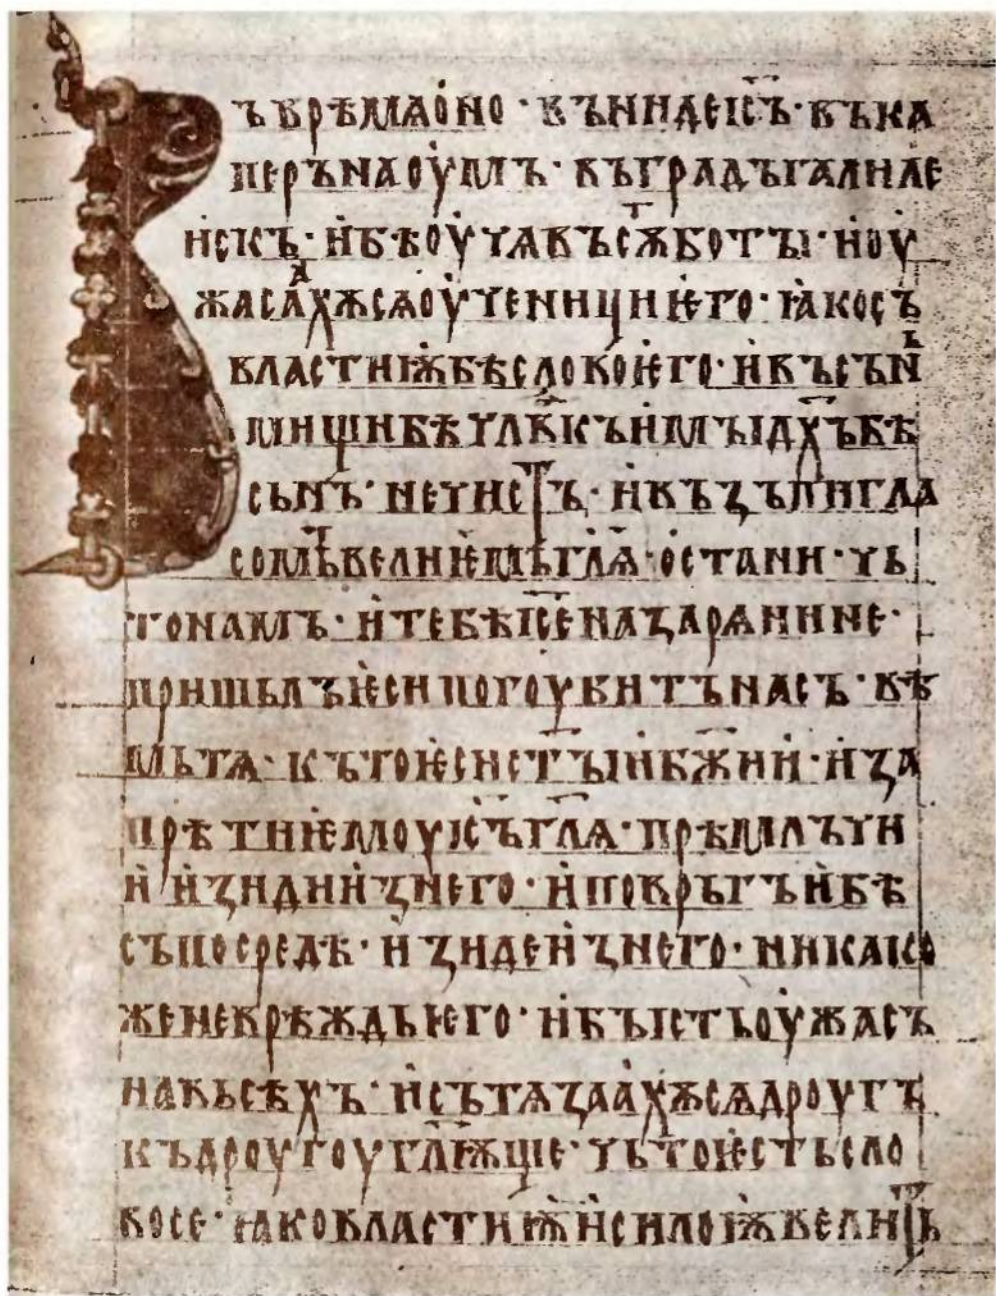 Въ врѣмѧ оно · вънидеіс҃ъ · въка
перънаоумъ · въградъгалиле
искъ · ибѣоучѧвъсѫботꙑ · иоу
жасаахѫсѧоученициѥго · ꙗкосъ
властиѭбѣсловоѥго · ивъсънь
мищибѣчл҃вкъимꙑд҃хъбѣ
сьнъ · нечистъ · ивъзъпигла
сомьвелиѥмьгл҃ѧ · остани · чь
тонамъ · итебѣіс҃еназарѧнине ·
пришьлъѥсипогоубитънасъ · вѣ
мьтѧ · кътоѥсист҃ꙑиб҃жии · иза
прѣтиѥмоуіс҃ъгл҃ѧ · прѣмлъчи
иизидиизнего · иповръгъибѣ
съпосредѣ · изидеизнего · никако
женеврѣждьѥго · ибꙑстьоужасъ
навьсѣхъ · исътѧзаахѫсѧдроугъ
къдроугоугл҃ѭще · чьтоѥстьсло
восе · ꙗковластиѭисилоѭвелитъ